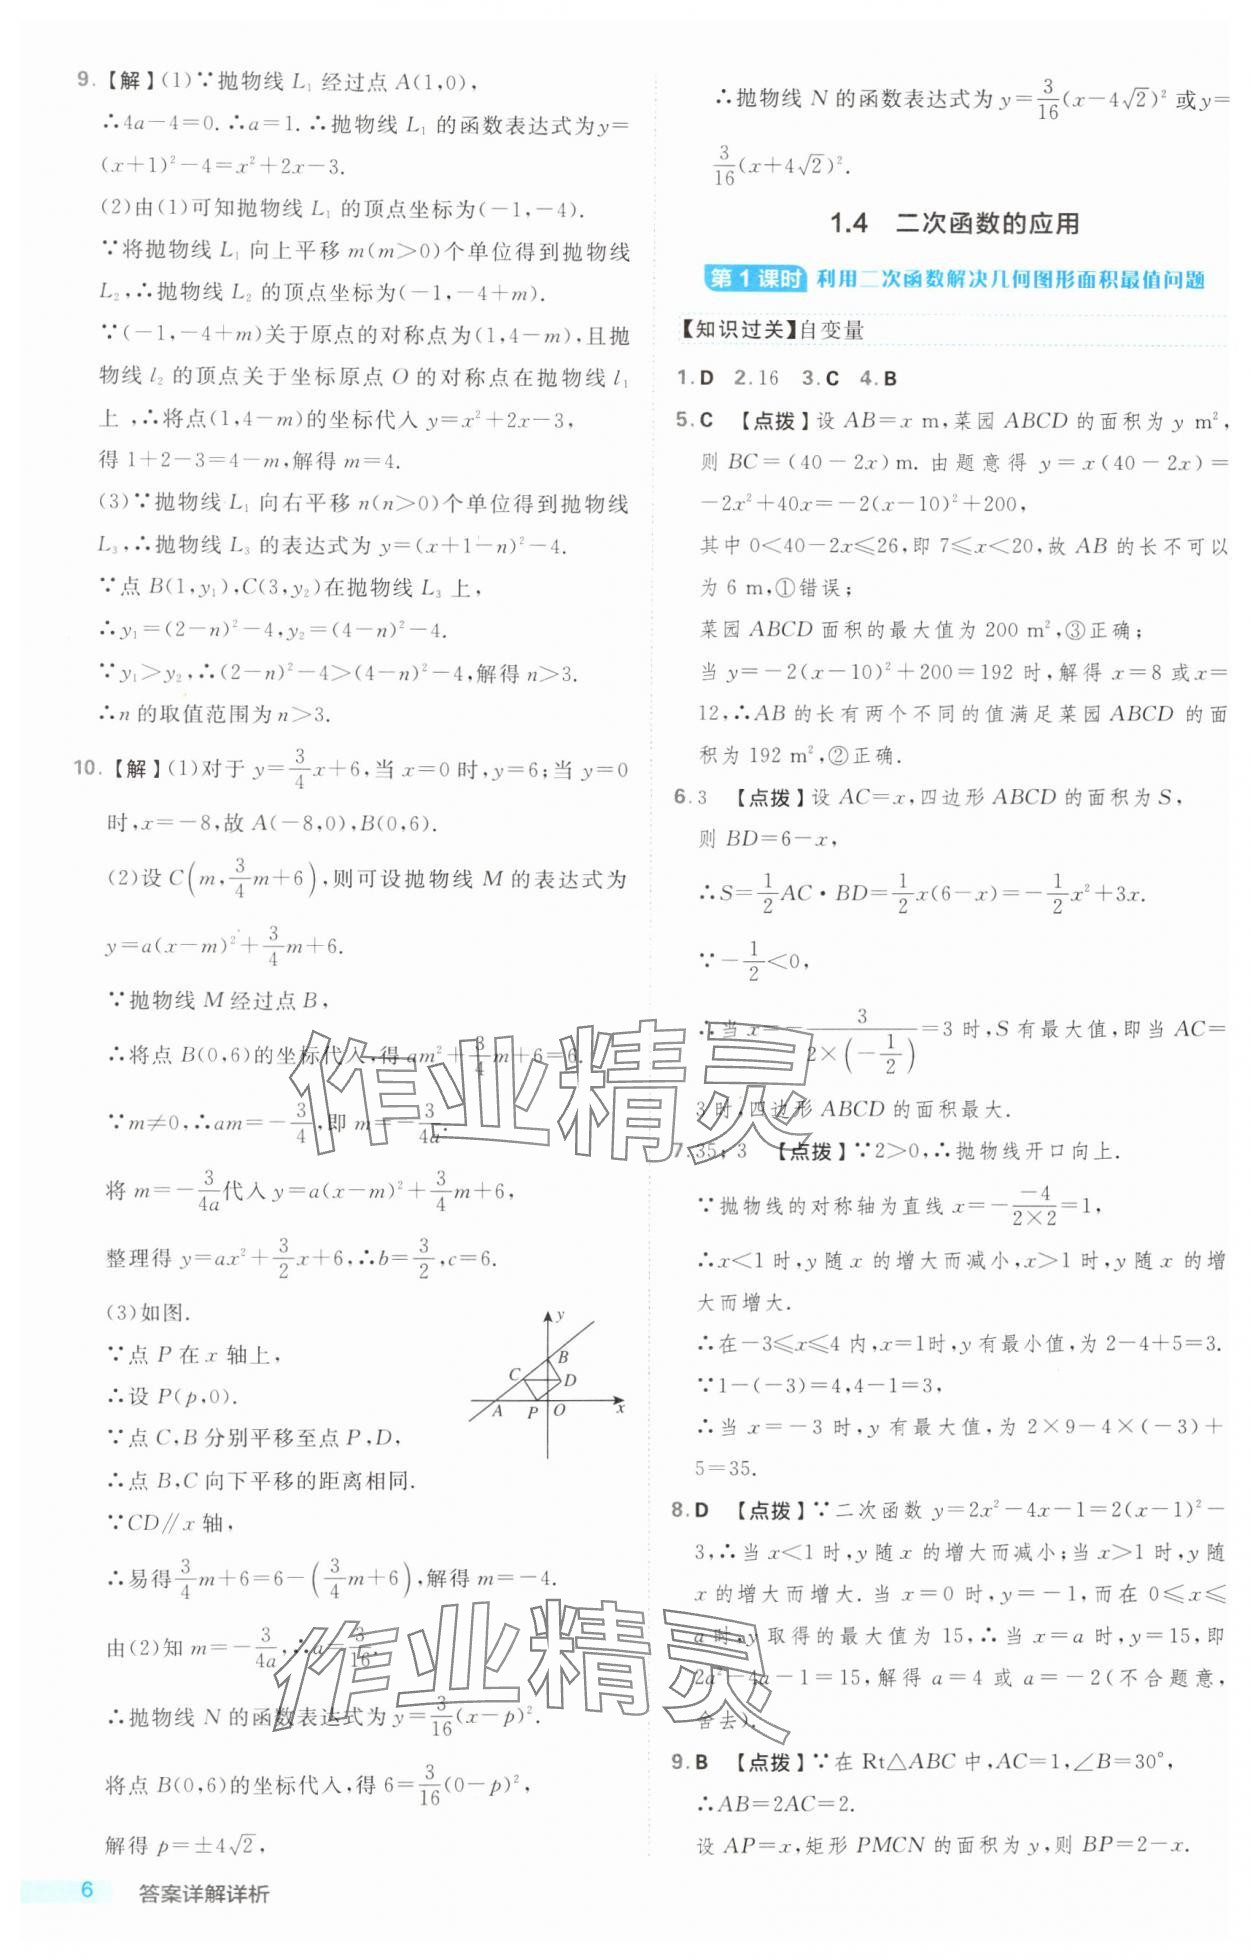 9.【解】(1)∵抛物线 L₁ 经过点 A(1,0),
∴4a-4=0.∴a=1.∴抛物线 L₁ 的函数表达式为y=
(x+1)²-4=x²+2x-3.
(2)由(1)可知抛物线 L₁ 的顶点坐标为(-1,-4).
∵将抛物线 L₁ 向上平移 m(m>0)个单位得到抛物线
L₂,∴抛物线 L₂ 的顶点坐标为(-1,-4+m).
∵(-1,-4+m)关于原点的对称点为(1,4-m),且抛
物线 l₂ 的顶点关于坐标原点 O 的对称点在抛物线 l₁
上,∴将点(1,4-m)的坐标代入 y=x²+2x-3,
得 1+2-3=4-m,解得 m=4.
(3)∵抛物线 L₁ 向右平移 n(n>0)个单位得到抛物线
L₃,∴抛物线 L₃ 的表达式为 y=(x+1-n)²-4.
∵点 B(1,y₁),C(3,y₂)在抛物线 L₃ 上,
∴y₁=(2-n)²-4,y₂=(4-n)²-4.
∵y₁>y₂,∴(2-n)²-4>(4-n)²-4,解得 n>3.
∴n 的取值范围为 n>3.
10.【解】(1)对于 y=3/4x+6,当 x=0 时,y=6;当 y=0
时,x=-8,故 A(-8,0),B(0,6).
(2)设 C(m,3/4m+6),则可设抛物线 M 的表达式为
y=a(x-m)²+3/4m+6.
∵抛物线 M 经过点 B,
∴将点 B(0,6)的坐标代入,得 am²+3/4m+6=6.
∵m≠0,∴am=-3/4,即 m=-3/4a.
将 m=-3/4a代入 y=a(x-m)²+3/4m+6,
整理得 y=ax²+3/2x+6,∴b=3/2,c=6.
(3)如图.
∵点 P 在 x 轴上,
∴设 P(p,0).
∵点 C,B 分别平移至点 P,D,
∴点 B,C 向下平移的距离相同.
∵CD∥x 轴,
∴易得3/4m+6=6-(3/4m+6),解得 m=-4.
由(2)知 m=-3/4a,∴a=3/16.
∴抛物线 N 的函数表达式为 y=3/16(x-p)².
将点 B(0,6)的坐标代入,得 6=3/16(0-p)²,
解得 p=±4√2,
y
B
C
D
A
P
O
x
∴抛物线 N 的函数表达式为 y=3/16(x-4√2)² 或 y=
3/16(x+4√2)².
1.4 二次函数的应用
第1课时 利用二次函数解决几何图形面积最值问题
【知识过关】自变量
1.D 2.16 3.C 4.B
5.C 【点拨】设 AB=x m,菜园 ABCD 的面积为 y m²,
则 BC=(40-2x)m.由题意得 y=x(40-2x)=
-2x²+40x=-2(x-10)²+200,
其中 0<40-2x≤26,即 7≤x<20,故 AB 的长不可以
为 6 m,①错误;
菜园 ABCD 面积的最大值为 200 m²,③正确;
当 y=-2(x-10)²+200=192 时,解得 x=8 或 x=
12,∴AB 的长有两个不同的值满足菜园 ABCD 的面
积为 192 m²,②正确.
6.3 【点拨】设 AC=x,四边形 ABCD 的面积为 S,
则 BD=6-x,
∴S=1/2AC·BD=1/2x(6-x)=-1/2x²+3x.
∵-1/2<0,
∴当 x=-3/(2×(-1/2))=3 时,S 有最大值,即当 AC=
3 时,四边形 ABCD 的面积最大.
7.35;3 【点拨】∵2>0,∴抛物线开口向上.
∵抛物线的对称轴为直线 x=-(-4)/(2×2)=1,
∴x<1 时,y 随 x 的增大而减小,x>1 时,y 随 x 的增
大而增大.
∴在-3≤x≤4 内,x=1时,y 有最小值,为 2-4+5=3.
∵1-(-3)=4,4-1=3,
∴当 x=-3 时,y 有最大值,为 2×9-4×(-3)+
5=35.
8.D 【点拨】∵二次函数 y=2x²-4x-1=2(x-1)²-
3,∴当 x<1 时,y 随 x 的增大而减小;当 x>1 时,y 随
x 的增大而增大.当 x=0 时,y=-1,而在 0≤x≤
a 时,y 取得的最大值为 15,∴当 x=a 时,y=15,即
2a²-4a-1=15,解得 a=4 或 a=-2(不合题意,
舍去).
9.B 【点拨】∵在 Rt△ABC 中,AC=1,∠B=30°,
∴AB=2AC=2.
设 AP=x,矩形 PMCN 的面积为 y,则 BP=2-x.
作业精灵
作业精灵
6 答案详解详析